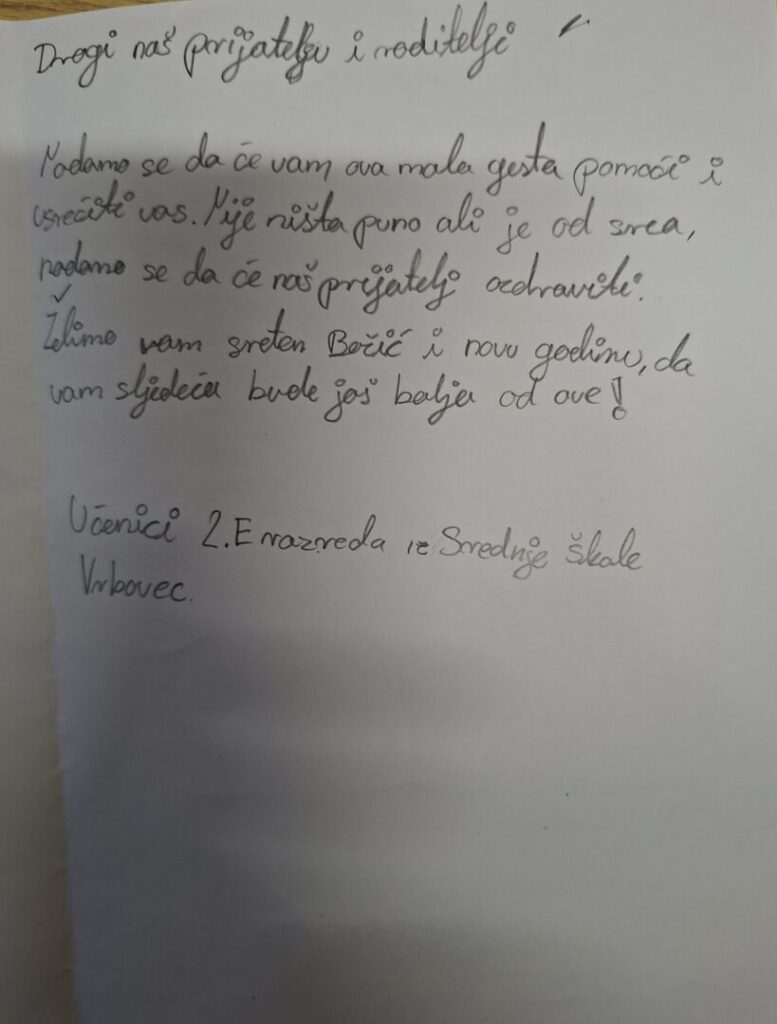 Dragi naš prijatelju i roditelji
Nadamo se da će vam ova mala gesta pomoći i
usrećiti vas. Nije ništa puno ali je od srca,
nadamo se da će naš prijatelj ozdraviti.
Želimo vam sretan Božić i novu godinu, da
vam sljedeća bude još bolja od ove!
Učenici 2.E razreda iz Srednje škole
Vrbovec.